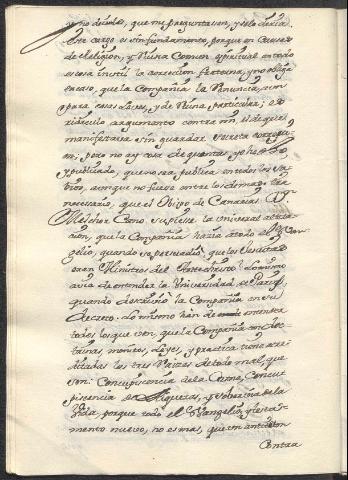 y no decirlo, que me preguntasen, y esto decia.
Este cargo es sin fundamento, porque en causa
de Religion, y Ruina comun espiritual en todo
es cosa inutil la correccion fraterna, y no obliga
en caso, que la Compañia la Renuncia, aun
para esas Leyes, y de Ruina particular; es
ridiculo argumento contra mi, el de que
manifestaria sin guardar secreto
pero no ay cosa de quantas yo he
y publicado, que no sea publica en todos los
aunque no fuese entre los demas tan
necesario, que el Obispo de Canarias D.n
Melchor Cano supiese la universal
que la Compañia hacia a todo el Evan-
gelio, quando se persuadió, que los Jesuitas
eran Ministros del Antechristo: Lo mismo
avia de entender la Universidad de Paris,
quando desterró la Compañia en su
Decreto. Lo mismo han de entender
todos los que vieren, que la Compañia en sus Doc-
trinas, modos, Leyes, y practica tiene acre-
ditadas las tres Raizes de todo mal, que
son: Concupiscencia de la Carne, Concu-
piscencia de Riquezas, y sobervia de la
Vida, porque todo el Evangelio, y Testa-
mento nuevo, no es mas, que un antidoto
Contra